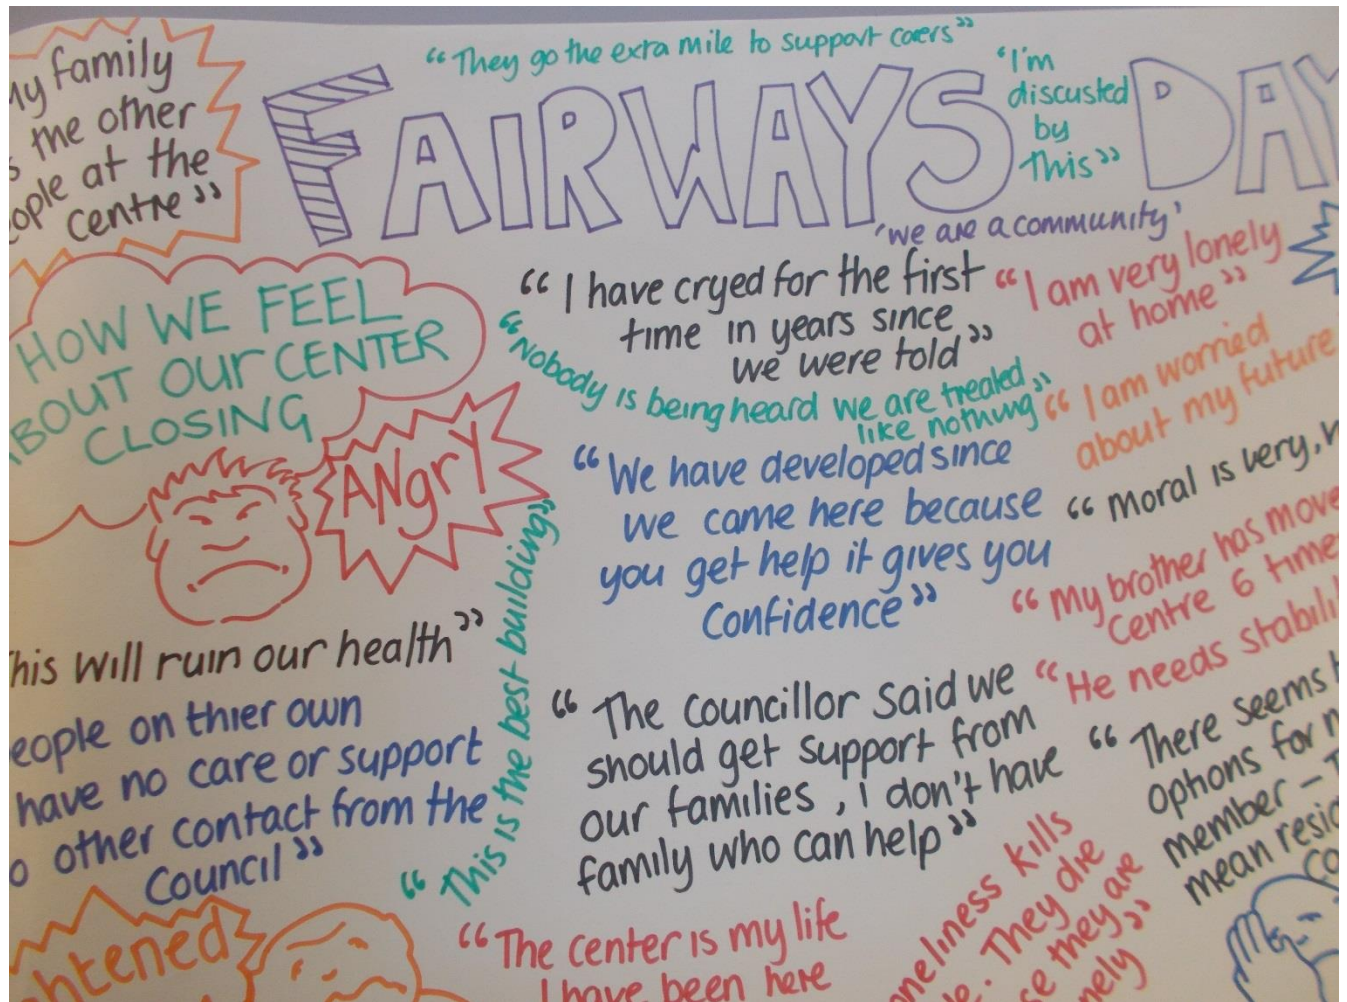 My family
the other
people at the
centre”
“They go the extra mile to support carers”
FAIRWAYS DAY
“I'm
discusted
by
This”
'we are a community'
HOW WE FEEL
ABOUT OUR CENTER
CLOSING
ANgrY
“I have cryed for the first
time in years since
we were told”
“I am very lonely
at home”
“Nobody is being heard we are treated
like nothing”
“I am worried
about my future
“We have developed since
we came here because
you get help it gives you
Confidence”
“Moral is very,
“My brother has move
centre 6 time
“He needs stabili
This will ruin our health”
people on thier own
have no care or support
other contact from the
Council”
“This is the best building”
“The councillor said we
should get support from
our families, I don't have
family who can help”
“There seems
options for
member –
mean resid
co
htened
“The center is my life
I have been here
oneliness kills
. They die
they are
nely”